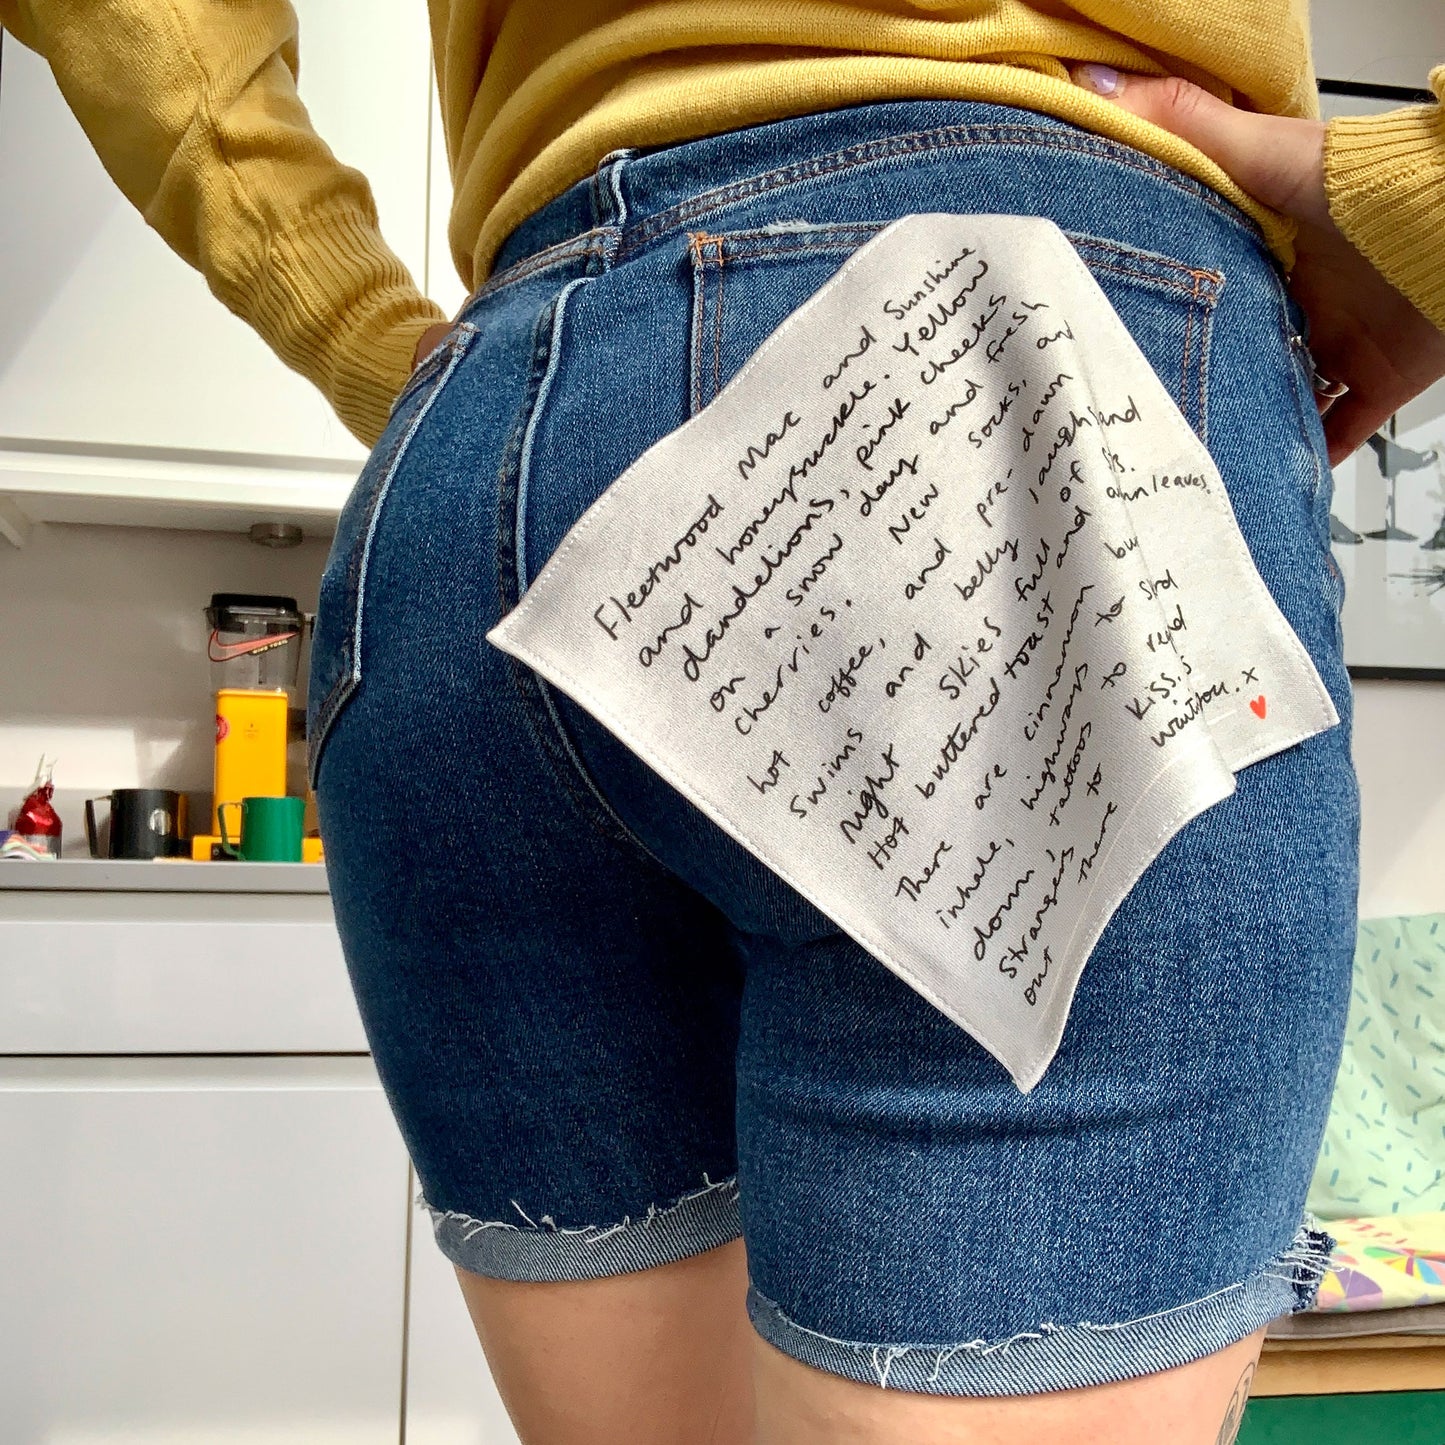 Fleetwood Mac and Sunshine
and honeysuckle. Yellow
dandelions, pink cheeks
on a snow day and fresh
cherries. New socks, and
hot coffee, and pre-dawn
swims and belly laughs and
Night skies full of
Hot buttered toast and
There are cinnamon bu
inhale, highways to
down, tattoos to
strangers to kiss.
out there waiting you. x